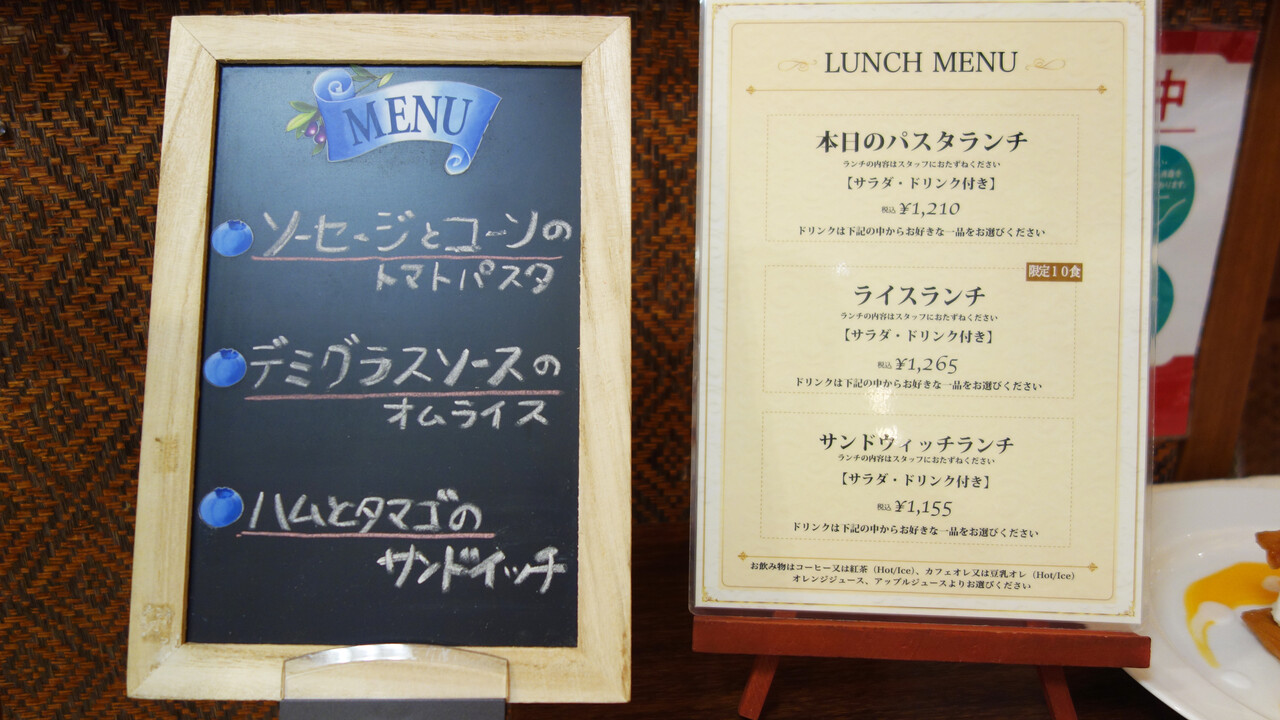 MENU
ソーセージとコーンの
トマトパスタ
デミグラスソースの
オムライス
ハムとタマゴの
サンドイッチ
LUNCH MENU
本日のパスタランチ
ランチの内容はスタッフにおたずねください
【サラダ・ドリンク付き】
税込 ¥1,210
ドリンクは下記の中からお好きな一品をお選びください
限定10食
ライスランチ
ランチの内容はスタッフにおたずねください
【サラダ・ドリンク付き】
税込 ¥1,265
ドリンクは下記の中からお好きな一品をお選びください
サンドウィッチランチ
ランチの内容はスタッフにおたずねください
【サラダ・ドリンク付き】
税込 ¥1,155
ドリンクは下記の中からお好きな一品をお選びください
お飲み物はコーヒー又は紅茶（Hot/Ice）、カフェオレ又は豆乳オレ（Hot/Ice）
オレンジジュース、アップルジュースよりお選びください
中